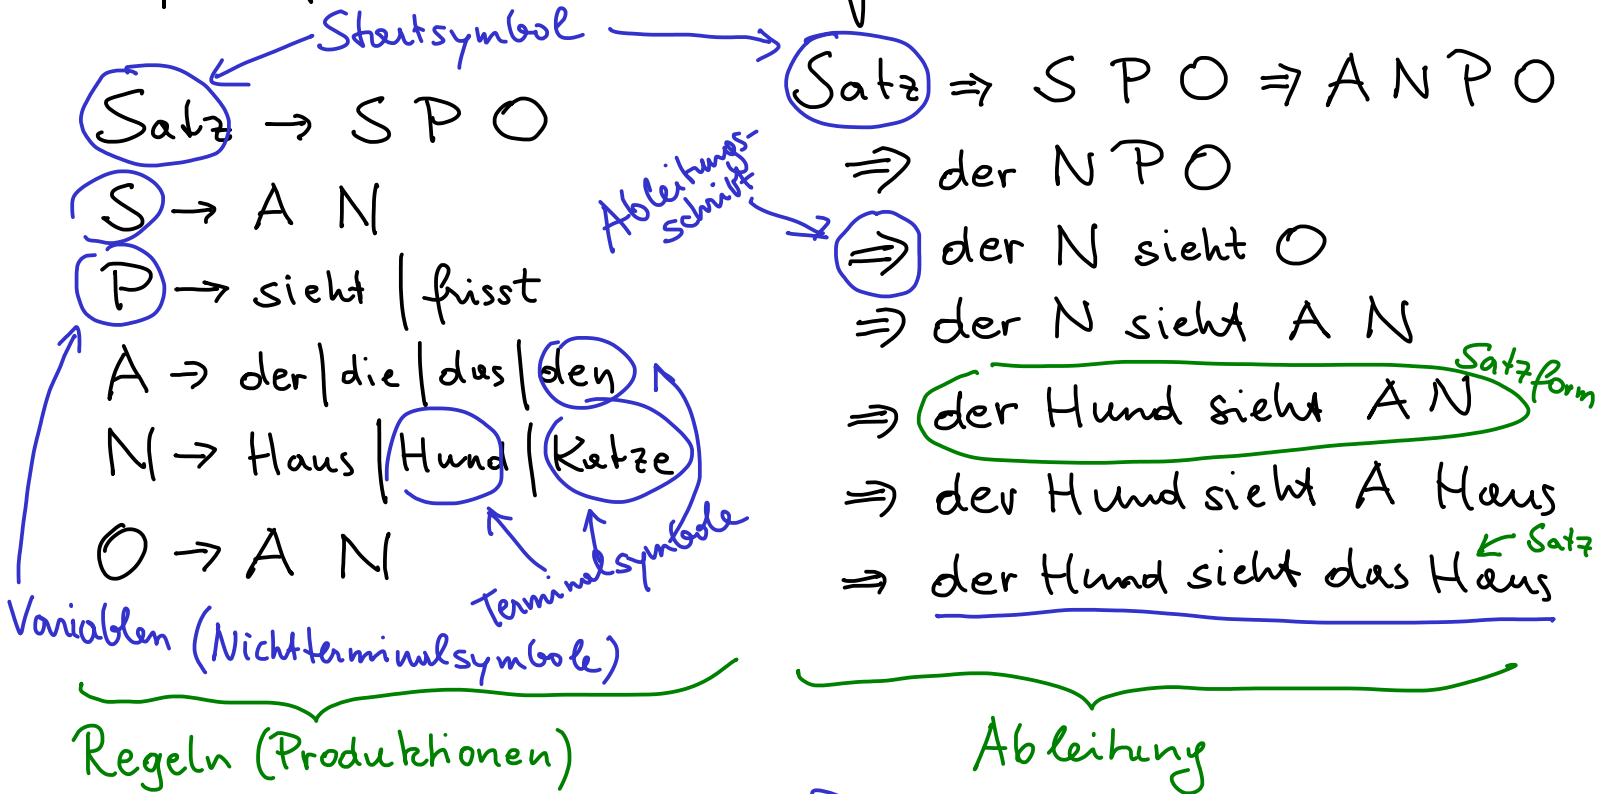 Startsymbol
Satz → S P O
S → A N
P → sieht | frisst
A → der | die | das | den
N → Haus | Hund | Katze
O → A N
Terminalsymbole
Variablen (Nichtterminalsymbole)
Regeln (Produktionen)
Satz ⇒ S P O ⇒ A N P O
⇒ der N P O
Ableitungs-
schritt
⇒ der N sieht O
⇒ der N sieht A N
Satzform
⇒ der Hund sieht A N
⇒ der Hund sieht A Haus
Satz
⇒ der Hund sieht das Haus
Ableitung